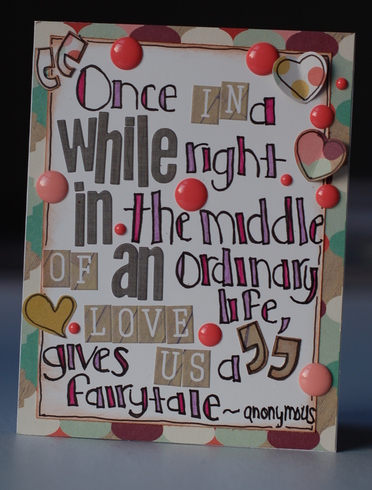 “Once IN a
while right
in the middle
OF an ordinary
life,
LOVE
gives US a”
fairytale ~ anonymous